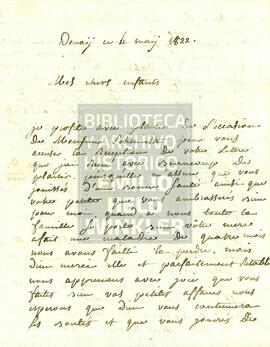 Douay ce 6 may 1822.
Mes chers enfants
je profite avec plaisir de l'occasion
de Monsieur pour vous
accuse la reception de votre lettre
que jai lu avec beaucoup de
plaisir puisquelle m'assure que vous
jouissez d'une bonne santé ainsi que
votre petite que vous embrasserez bien
pour moi quand a nous toute la
famille se porte bien votre mere
a fait une maladie de quatre mois
nous avons failli la perdre mais
dieu merci elle est parfaitement retablie
nous apprenons avec joie que vous
faites bien vos petites affaires nous
esperons que dieu vous continuera
la santé et que vous jouirez de
BIBLIOTECA
HISTÓRICO
EMILIO
HELD
WINKLER